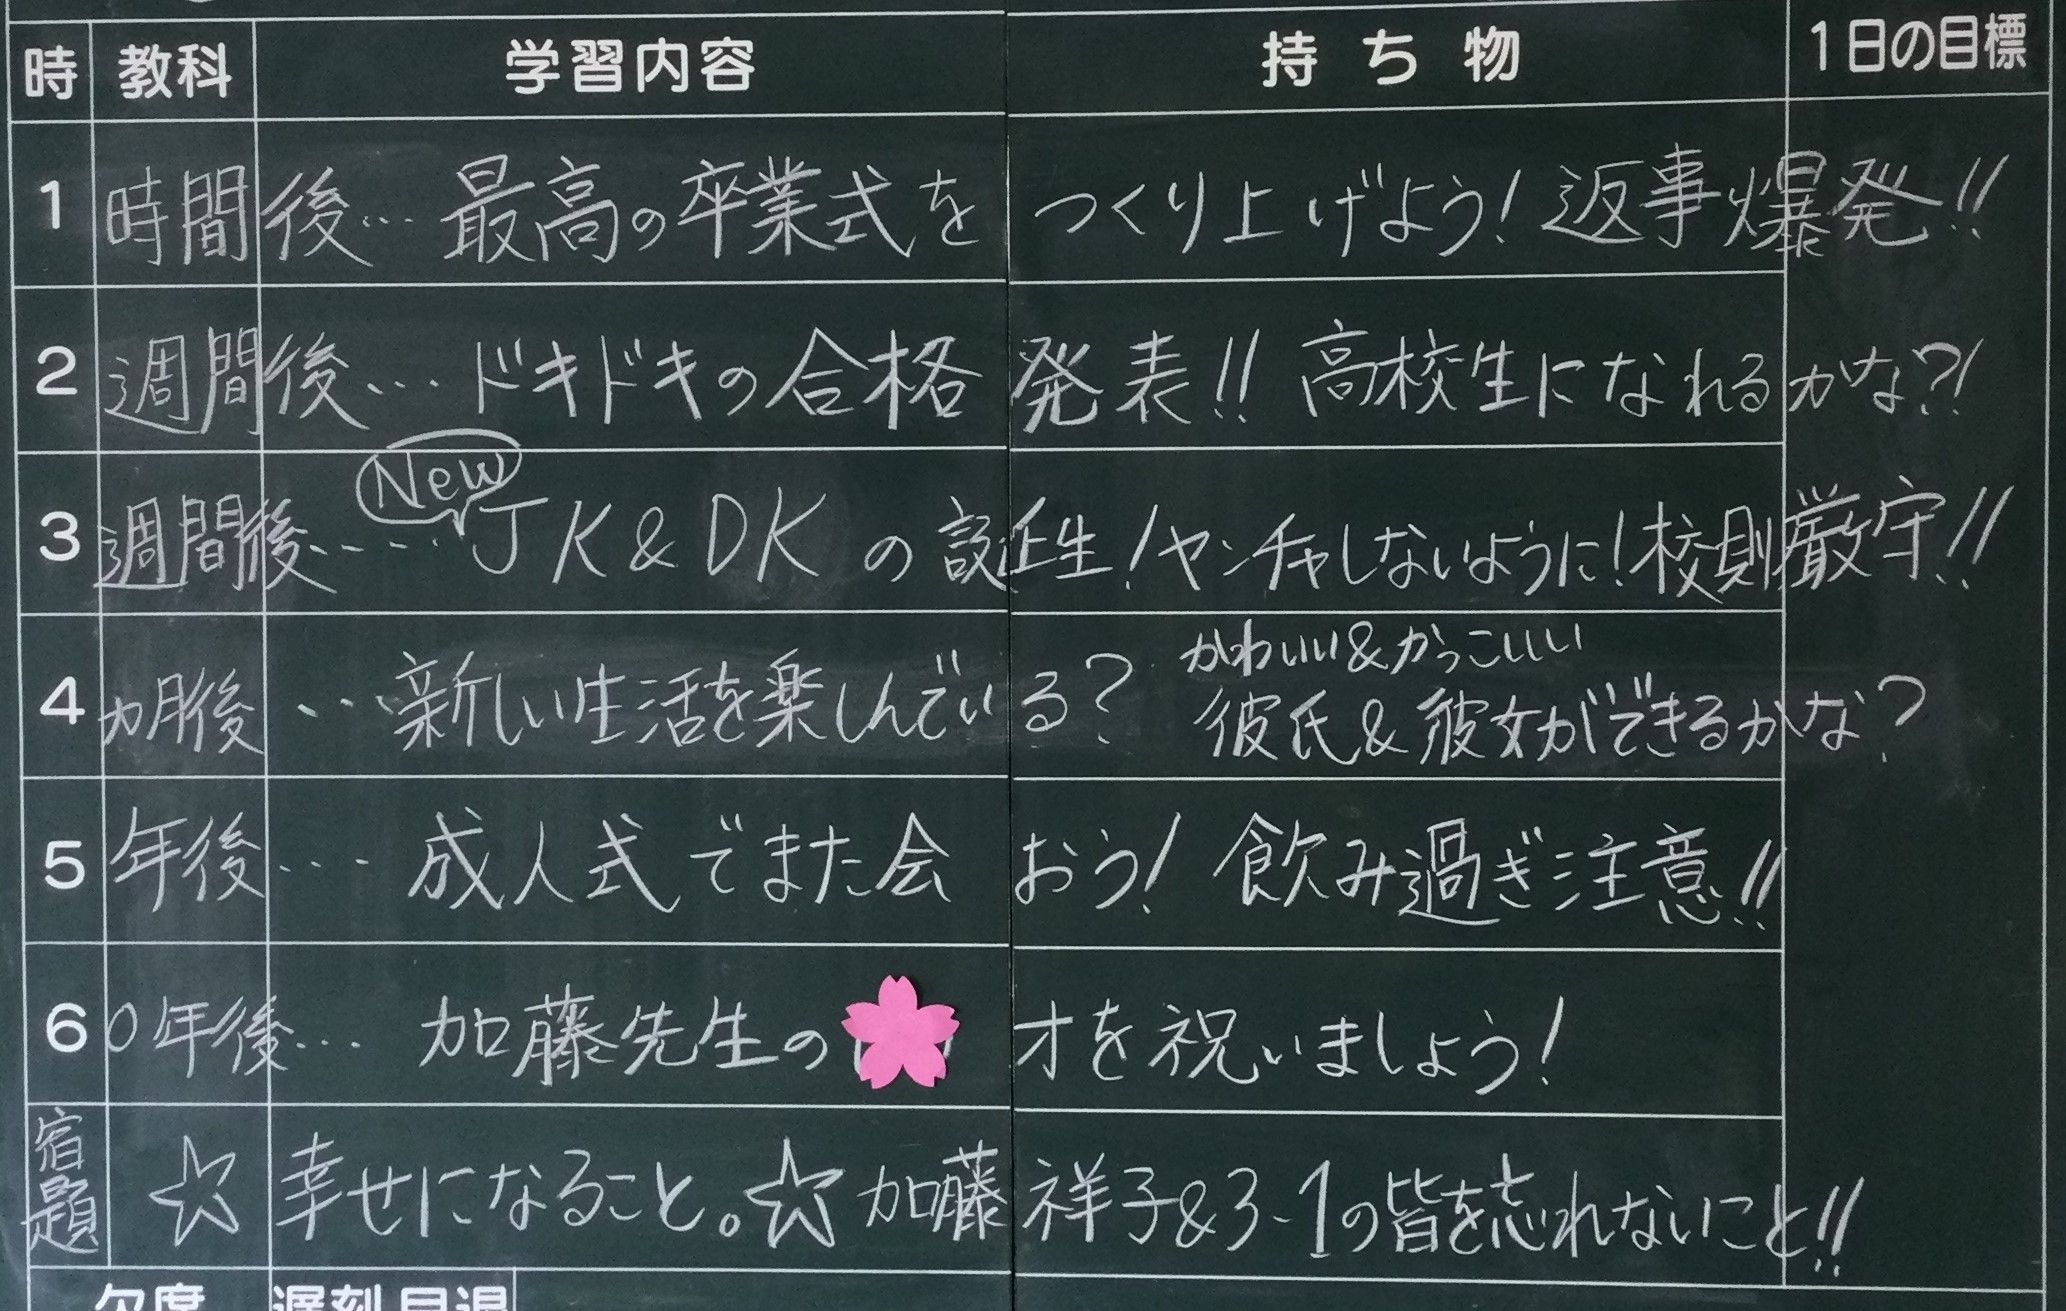 時 教科 学習内容 持ち物 1日の目標
1 時間後… 最高の卒業式をつくり上げよう！返事爆発!!
2 週間後… ドキドキの合格発表!! 高校生になれるかな?!
New
3 週間後…… JK&DKの誕生！ヤンチャしないように！校則厳守!!
かわいい&かっこいい
4 カ月後 … 新しい生活を楽しんでいる？ 彼氏&彼女ができるかな？
5 年後… 成人式でまた会おう！ 飲み過ぎ注意!!
6 0年後… 加藤先生の 才を祝いましょう！
宿題 ☆ 幸せになること。☆ 加藤祥子&3-1の皆を忘れないこと!!